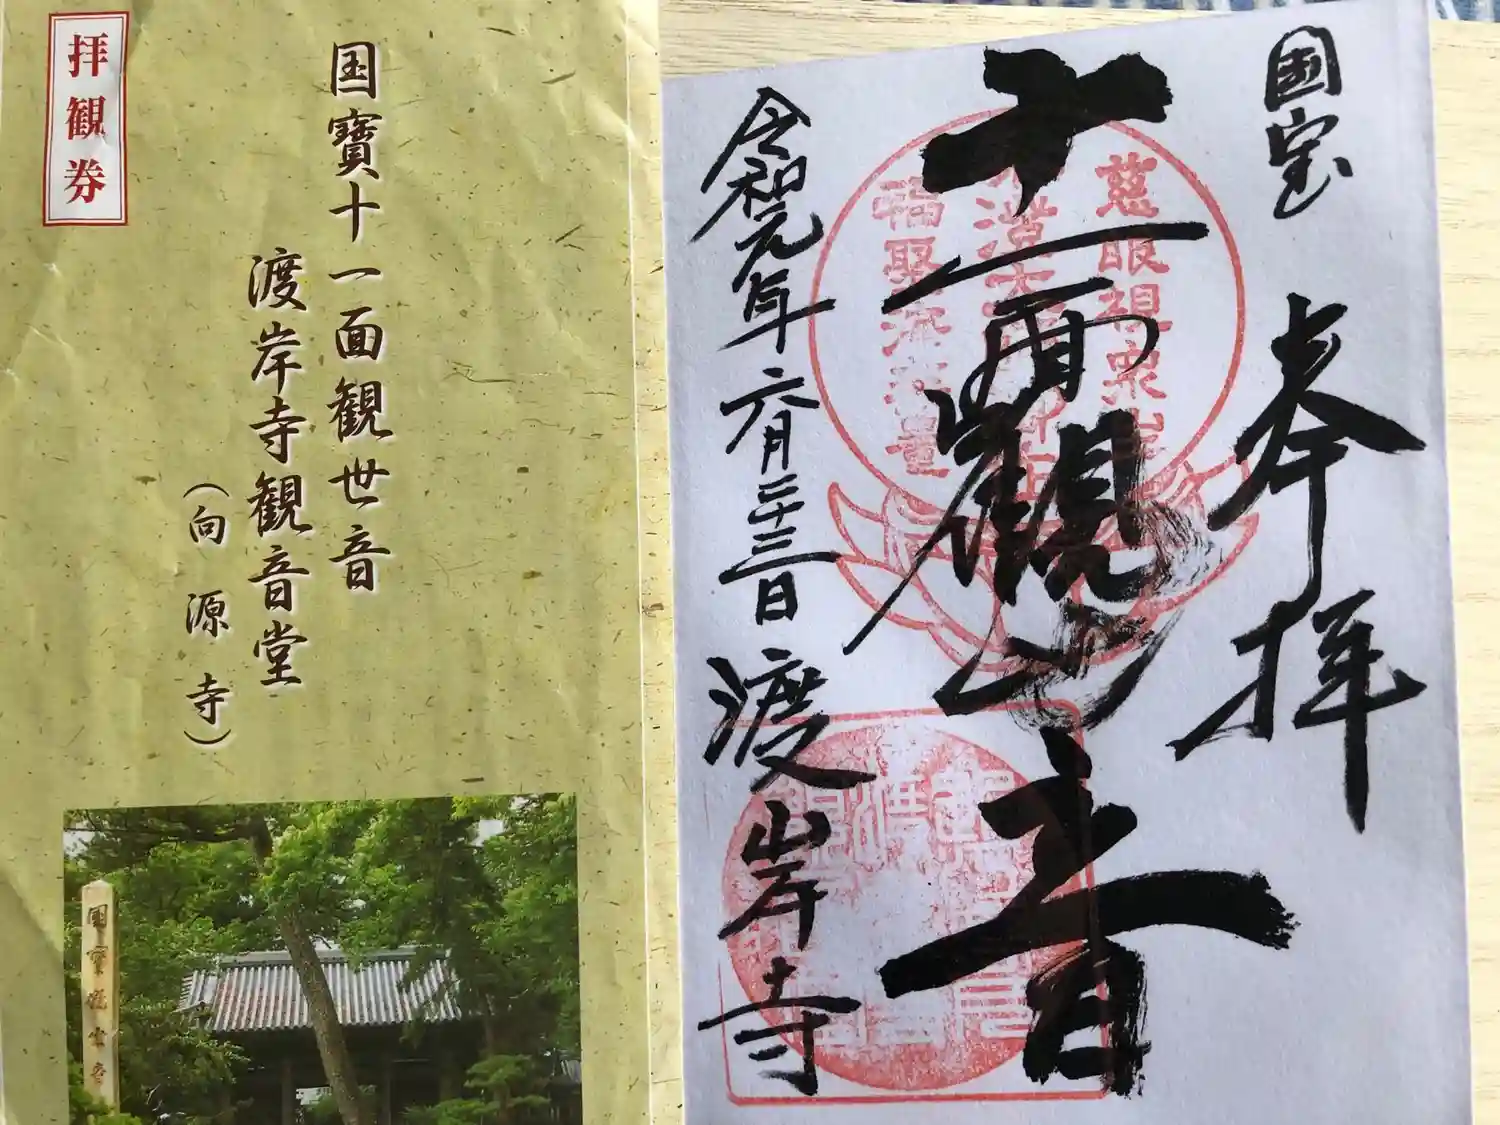 拝観券
国寶十一面観世音
渡岸寺観音堂
（向源寺）
国宝
奉拝
十一面観世音
令和元年六月二十三日
渡岸寺
慈眼視衆生
福聚海無量